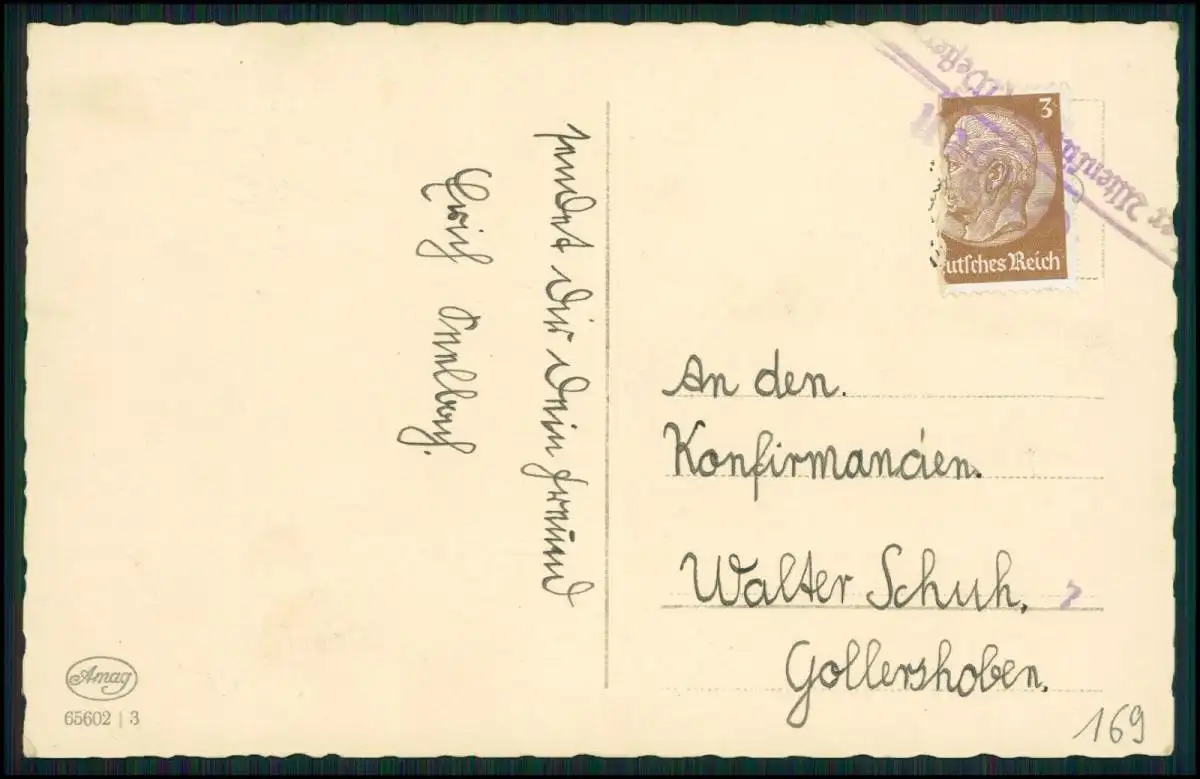 sendet dir dein Freund
Erich
3
utsches Reich
An den.
Konfirmanden.
Walter Schuh.
Gollershoben.
Amag
65602 | 3
169